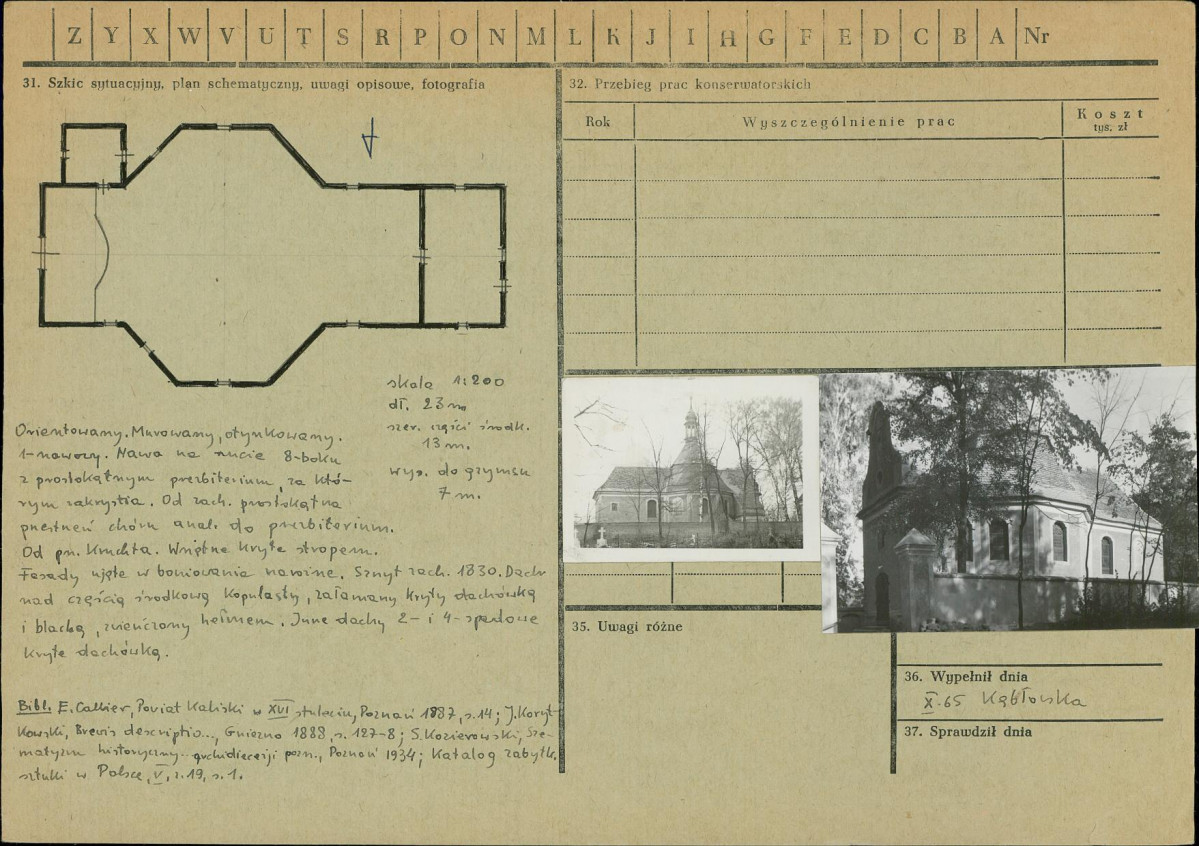 Z Y X W V U T S R P O N M L K J I H G F E D C B A Nr
31. Szkic sytuacyjny, plan schematyczny, uwagi opisowe, fotografia
skala 1:200
dł. 23 m
szer. części środk.
13 m.
wys. do gzymsu
7 m.
Orientowany. Murowany, otynkowany.
1-nawowy. Nawa na rzucie 8-boku
z prostokątnym prezbiterium, za któ-
rym zakrystia. Od zach. prostokątna
przestrzeń chóru anal. do prezbiterium.
Od pn. Kruchta. Wnętrze kryte stropem.
Fasady ujęte w boniowania narożne. Szczyt zach. 1830. Dach
nad częścią środkową kopulasty, załamany kryty dachówką
i blachą, zwieńczony hełmem. Inne dachy 2- i 4-spadowe
kryte dachówką.
Bibl. E. Callier, Powiat Kaliski w XVI stuleciu, Poznań 1887, s.14; J. Koryt-
kowski, Brevis descriptio..., Gniezno 1888, s. 127-8; S. Kozierowski, Sze-
matyzm historyczny... archidiecezji pozn., Poznań 1934; Katalog zabytk.
sztuki w Polsce, V, z.19, s.1.
32. Przebieg prac konserwatorskich
Rok Wyszczególnienie prac Koszt
tys. zł
35. Uwagi różne
36. Wypełnił dnia
X.65 Kąbłowska
37. Sprawdził dnia